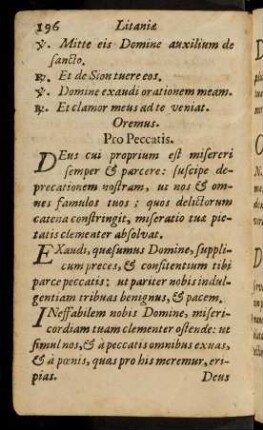 196 Litaniæ
℣. Mitte eis Domine auxilium de
sancto.
℟. Et de Sion tuere eos.
℣. Domine exaudi orationem meam.
℟. Et clamor meus ad te veniat.
Oremus.
Pro Peccatis.
DEus cui proprium est misereri
semper & parcere: suscipe de-
precationem nostram, ut nos & om-
nes famulos tuos; quos delictorum
catena constringit, miseratio tuæ pie-
tatis clementer absolvat.
EXaudi, quæsumus Domine, suppli-
cum preces, & confitentium tibi
parce peccatis: ut pariter nobis indul-
gentiam tribuas benignus, & pacem.
INeffabilem nobis Domine, miseri-
cordiam tuam clementer ostende: ut
simul nos, & à peccatis omnibus exuas,
& à pœnis, quas pro his meremur, eri-
pias. Deus